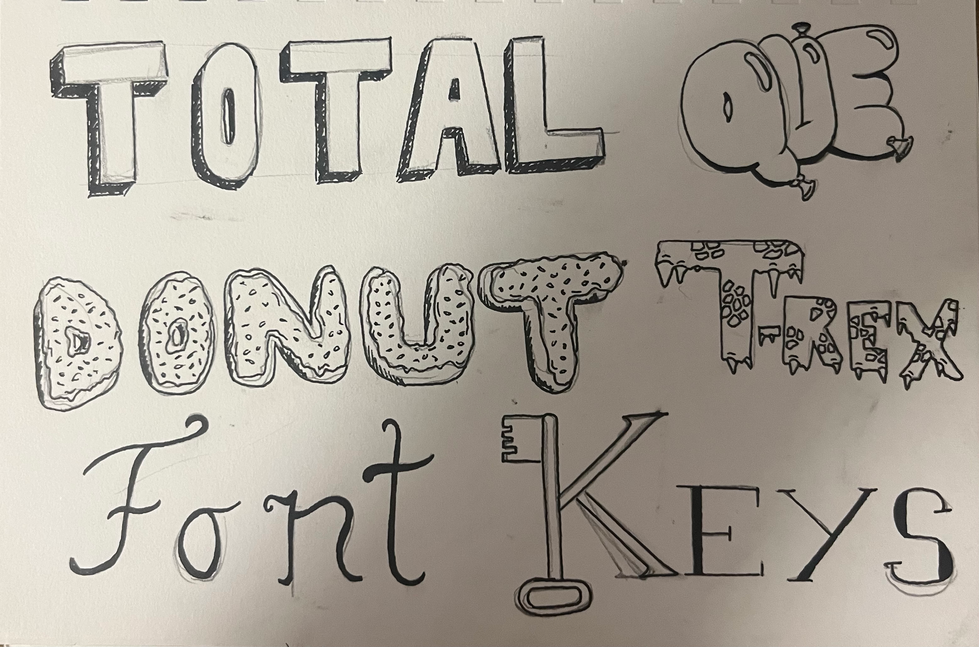 TOTAL QUE
DONUT T-REX
Font KEYS